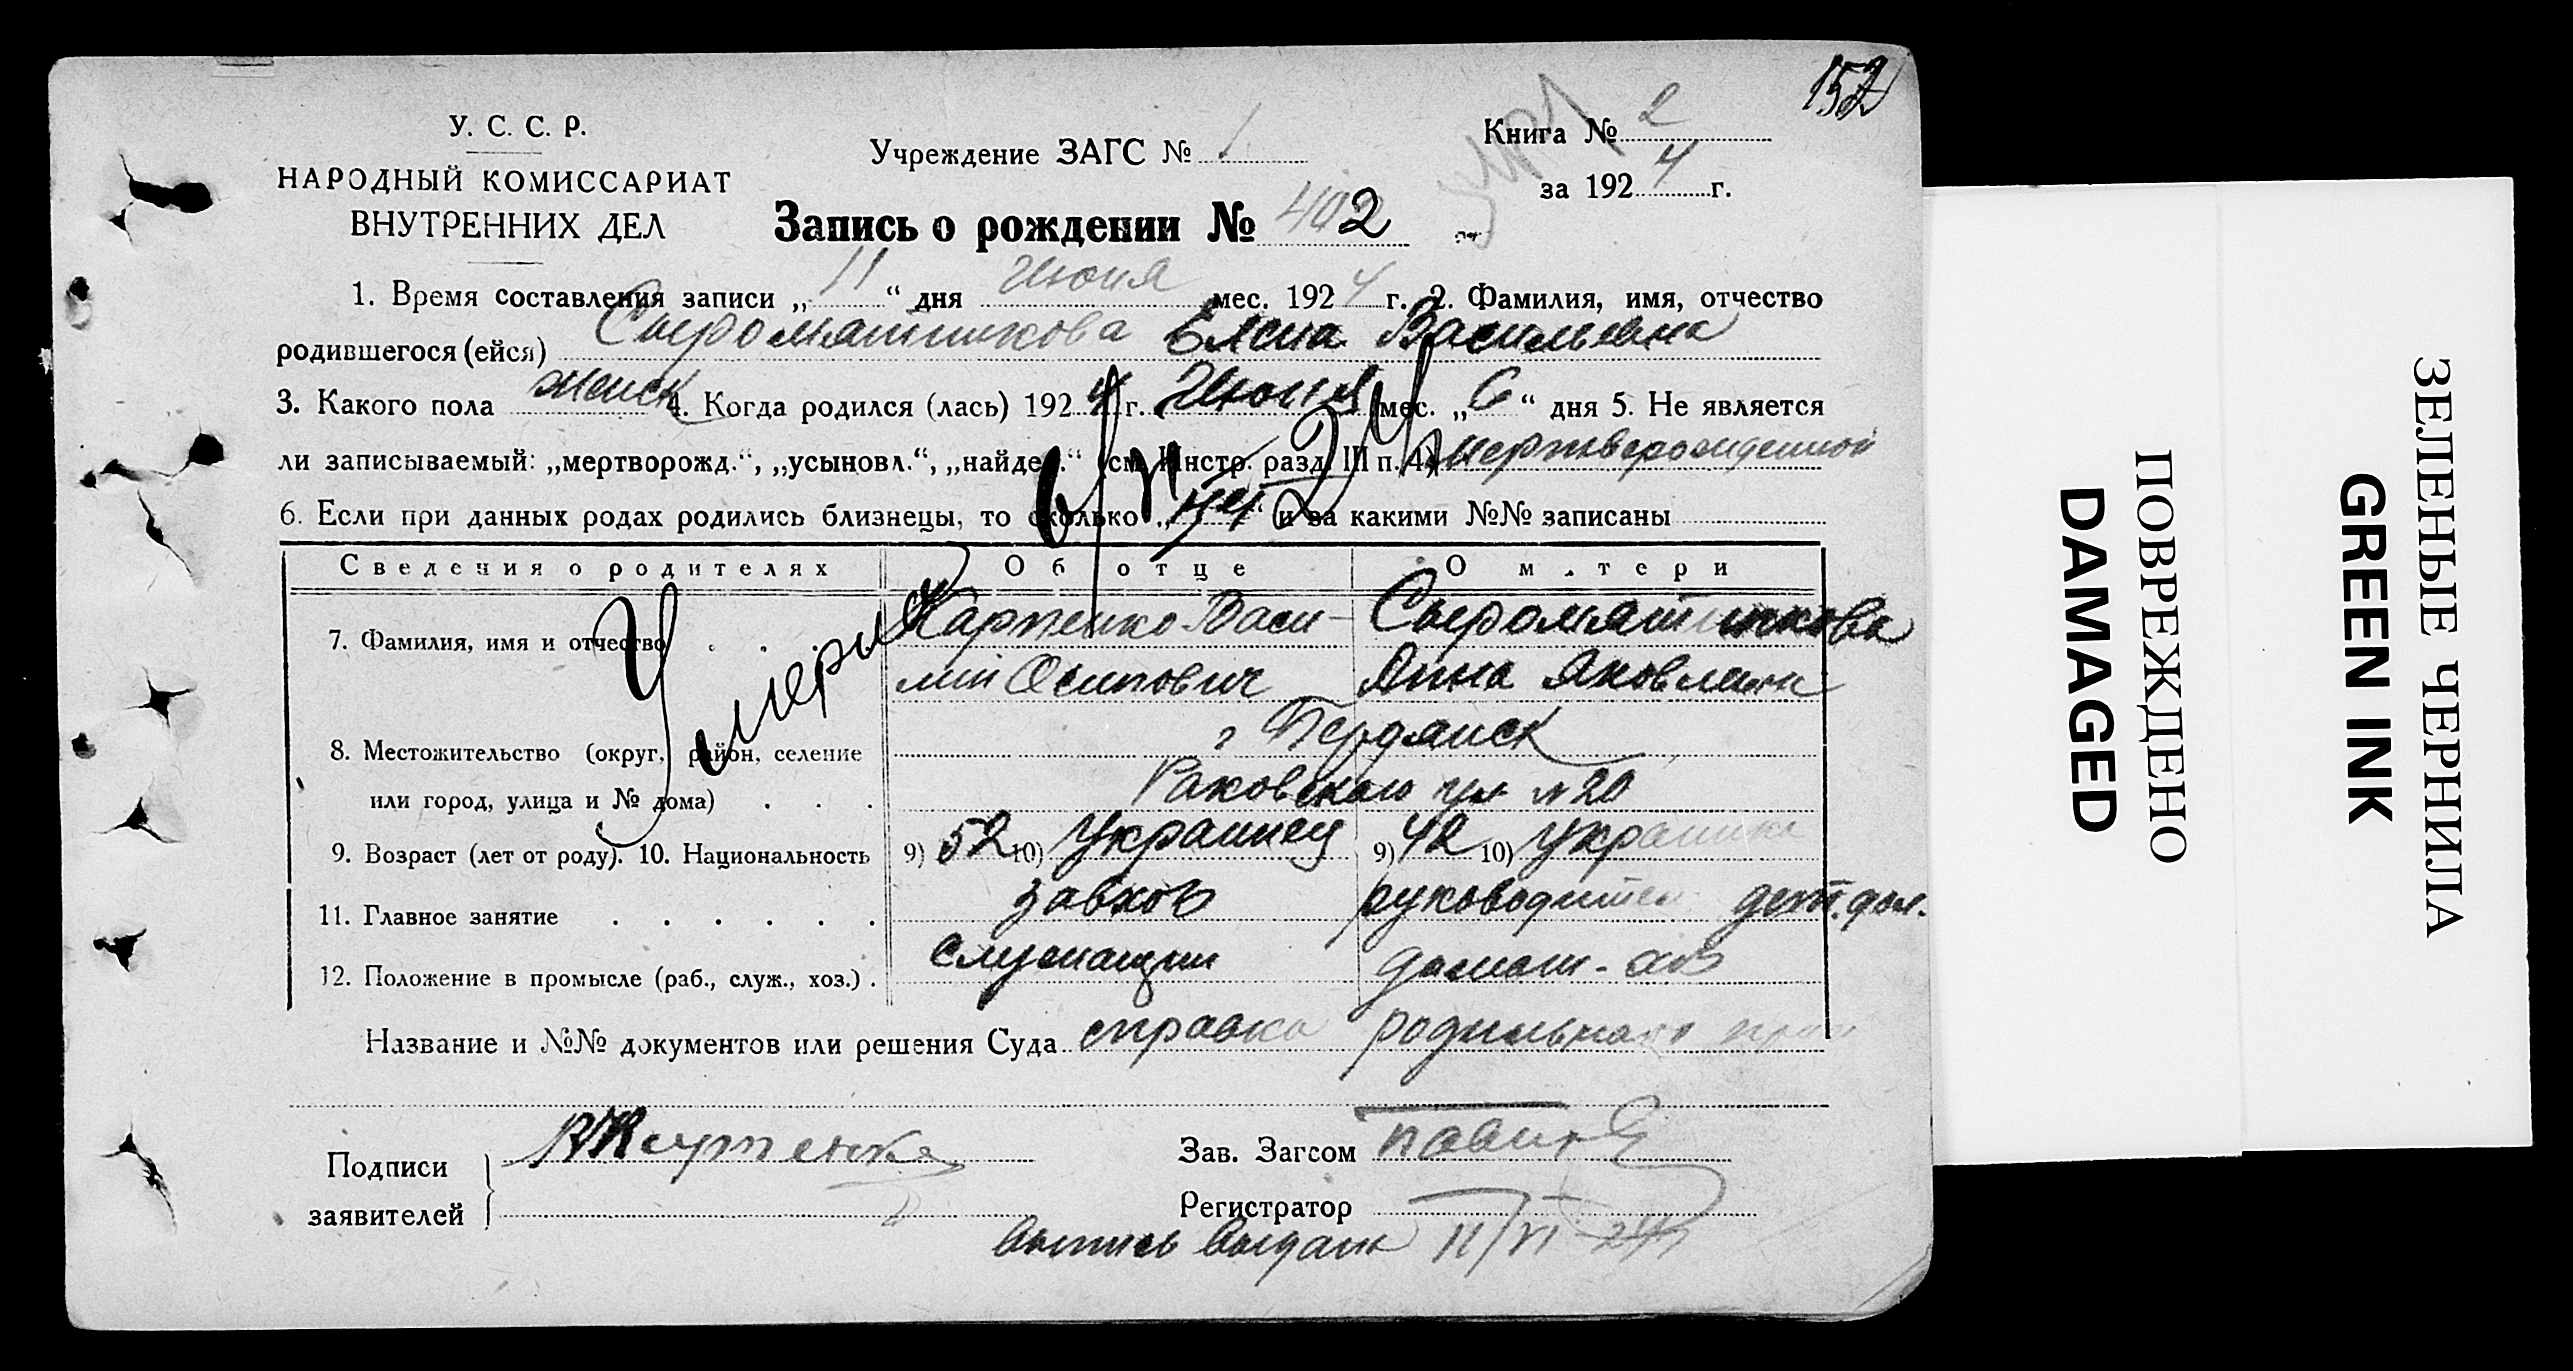 152
У. С. С. Р.
НАРОДНЫЙ КОМИССАРИАТ
ВНУТРЕННИХ ДЕЛ
Учреждение ЗАГС № 1
Книга № 2
за 1924 г.
Запись о рождении № 402
1. Время составления записи „11“ дня Июня мес. 1924 г. 2. Фамилия, имя, отчество
родившегося (ейся) Сыромятникова Елена Васильевна
3. Какого пола женск 4. Когда родился (лась) 1924 г. Июня мес. „6“ дня 5. Не является
ли записываемый: „мертворожд.“, „усыновл.“, „найден.“ (см. Инстр. разд. III п. 4) мертворожденной
6. Если при данных родах родились близнецы, то сколько „нет“ и за какими №№ записаны
Умерла 6/VI 24
Сведения о родителях Об отце О матери
7. Фамилия, имя и отчество Карпенко Васи- Сыромятникова
лий Осипович Анна Яковлевна
8. Местожительство (округ, район, селение г Бердянск
или город, улица и № дома) Раковского ул. № 20
9. Возраст (лет от роду). 10. Национальность 9) 52 10) Украинец 9) 42 10) Украинка
11. Главное занятие завхоз руководител дет. дом.
12. Положение в промысле (раб., служ., хоз.) служащий домаш. хоз
Название и №№ документов или решения Суда справка родильного
Подписи заявителей ВКарпенко
Зав. Загсом
Регистратор
Выпись выдана 11/VI 24
ПОВРЕЖДЕНО
DAMAGED
ЗЕЛЕНЫЕ ЧЕРНИЛА
GREEN INK